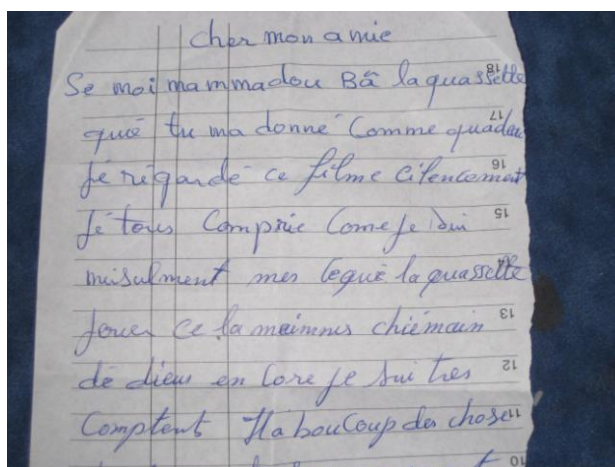 cher mon amie
Se moi mammadou Bâ la quassette
quiè tu ma donné Comme quadau
Jé régardé ce filme cilencement
Jé tous Comprie Come Je sui
musulment mes lequé la quassette
Jouer ce la meimnes chiémain
dé dieu en Core Je sui tres
Comptent Ila boucoup des choses
18
17
16
15
14
13
12
11
10